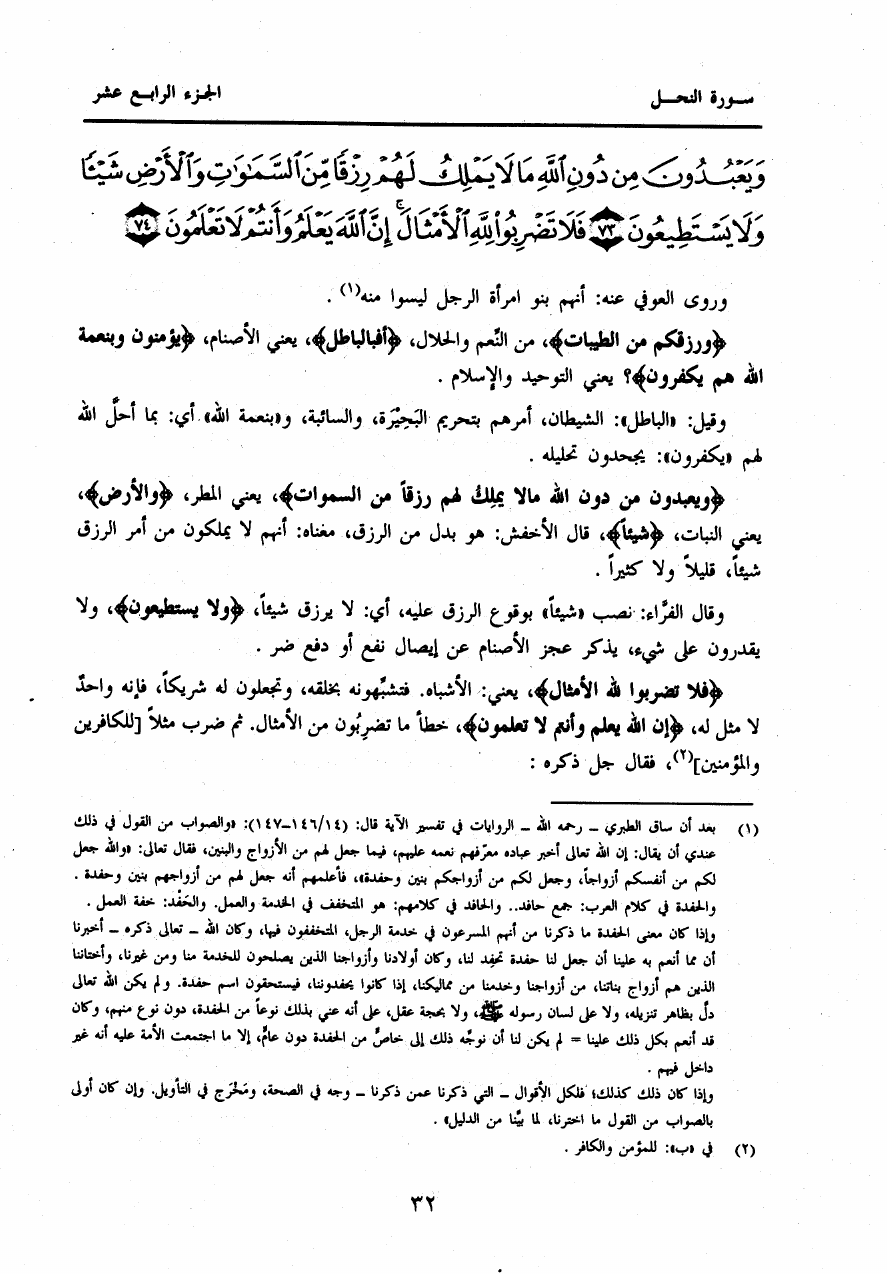 سورة النحل
الجزء الرابع عشر
وَيَعْبُدُونَ مِن دُونِ ٱللَّهِ مَا لَا يَمْلِكُ لَهُمْ رِزْقًا مِّنَ ٱلسَّمَٰوَٰتِ وَٱلْأَرْضِ شَيْـًٔا
وَلَا يَسْتَطِيعُونَ ﴿٧٣﴾ فَلَا تَضْرِبُوا۟ لِلَّهِ ٱلْأَمْثَالَ ۚ إِنَّ ٱللَّهَ يَعْلَمُ وَأَنتُمْ لَا تَعْلَمُونَ ﴿٧٤﴾
وروى العوفي عنه: أنهم بنو امرأة الرجل ليسوا منه(١) .
﴿ورزقكم من الطيبات﴾، من النِّعم والحلال، ﴿أفبالباطل﴾، يعني الأصنام، ﴿يؤمنون وبنعمة
الله هم يكفرون﴾؟ يعني التوحيد والإسلام .
وقيل: «الباطل»: الشيطان، أمرهم بتحريم البَحِيْرَة، والسائبة، و«بنعمة الله» أي: بما أحلَّ الله
لهم «يكفرون»: يجحدون تحليله .
﴿ويعبدون من دون الله مالا يملِكُ لهم رزقاً من السموات﴾، يعني المطر، ﴿والأرض﴾،
يعني النبات، ﴿شيئاً﴾، قال الأخفش: هو بدل من الرزق، معناه: أنهم لا يملكون من أمر الرزق
شيئاً، قليلاً ولا كثيراً .
وقال الفرَّاء: نصب «شيئاً» بوقوع الرزق عليه، أي: لا يرزق شيئاً، ﴿ولا يستطيعون﴾، ولا
يقدرون على شيء، يذكر عجز الأصنام عن إيصال نفع أو دفع ضر .
﴿فلا تضربوا لله الأمثال﴾، يعني: الأشباه. فتشبِّهونه بخلقه، وتجعلون له شريكاً، فإنه واحدٌ
لا مثل له، ﴿إن الله يعلم وأنتم لا تعلمون﴾، خطأ ما تضرِبُون من الأمثال. ثم ضرب مثلاً [للكافرين
والمؤمنين](٢)، فقال جل ذكره :
(١) بعد أن ساق الطبري – رحمه الله – الروايات في تفسير الآية قال: (١٤/١٤٦–١٤٧): «والصواب من القول في ذلك
عندي أن يقال: إن الله تعالى أخبر عباده معرِّفهم نعمه عليهم، فيما جعل لهم من الأزواج والبنين، فقال تعالى: «والله جعل
لكم من أنفسكم أزواجاً، وجعل لكم من أزواجكم بنين وحفدة»، فأعلمهم أنه جعل لهم من أزواجهم بنين وحفدة .
والحفدة في كلام العرب: جمع حافد.. والحافد في كلامهم: هو المتخفف في الخدمة والعمل. والحَفْد: خفة العمل .
وإذا كان معنى الحفدة ما ذكرنا من أنهم المسرعون في خدمة الرجل، المتخففون فيها، وكان الله – تعالى ذكره – أخبرنا
أن مما أنعم به علينا أن جعل لنا حفدة تحفِد لنا، وكان أولادنا وأزواجنا الذين يصلحون للخدمة منا ومن غيرنا، وأختاننا
الذين هم أزواج بناتنا، من أزواجنا وخدمنا من مماليكنا، إذا كانوا يحفدوننا، فيستحقون اسم حفدة. ولم يكن الله تعالى
دلَّ بظاهر تنزيله، ولا على لسان رسوله ﷺ، ولا بحجة عقل، على أنه عني بذلك نوعاً من الحفدة، دون نوع منهم، وكان
قد أنعم بكل ذلك علينا = لم يكن لنا أن نوجِّه ذلك إلى خاصٍّ من الحفدة دون عامٍّ، إلا ما اجتمعت الأمة عليه أنه غير
داخل فيهم .
وإذا كان ذلك كذلك؛ فلكل الأقوال – التي ذكرنا عمن ذكرنا – وجه في الصحة، ومَخْرَج في التأويل. وإن كان أولى
بالصواب من القول ما اخترنا، لما بيَّنا من الدليل» .
(٢) في «ب»: للمؤمن والكافر .
٣٢